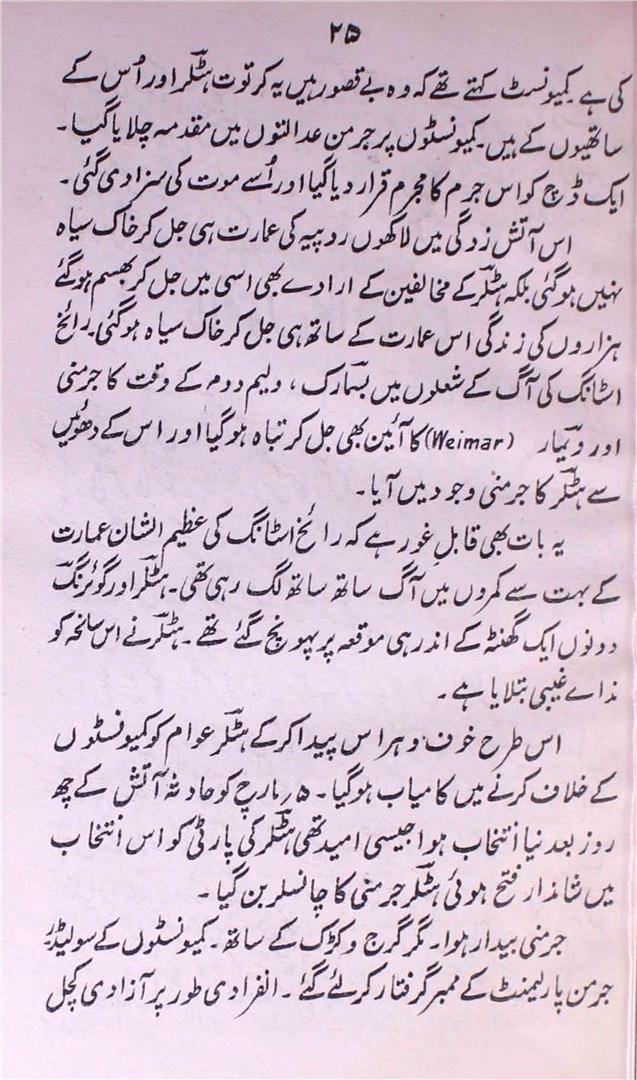 ۲۵
کی ہے۔ کمیونسٹ کہتے تھے کہ وہ بے قصور ہیں یہ کرتوت ہٹلر اور اُس کے
ساتھیوں کے ہیں۔ کمیونسٹوں پر جرمن عدالتوں میں مقدمہ چلایا گیا۔
ایک ڈچ کو اس جرم کا مجرم قرار دیا گیا اور اُسے موت کی سزا دی گئی۔
اس آتش زدگی میں لاکھوں روپیہ کی عمارت ہی جل کر خاک سیاہ
نہیں ہوگئی بلکہ ہٹلر کے مخالفین کے ارادے بھی اسی میں جل کر بھسم ہوگئے
ہزاروں کی زندگی اس عمارت کے ساتھ ہی جل کر خاک سیاہ ہوگئی۔ رائخ
اسٹانگ کی آگ کے شعلوں میں بسمارک ، ولیم دوم کے وقت کا جرمنی
اور ویمار (Weimar) کا آئین بھی جل کر تباہ ہوگیا اور اس کے دھوئیں
سے ہٹلر کا جرمنی وجود میں آیا۔
یہ بات بھی قابلِ غور ہے کہ رائخ اسٹانگ کی عظیم الشان عمارت
کے بہت سے کمروں میں آگ ساتھ ساتھ لگ رہی تھی۔ ہٹلر اور گوئرنگ
دونوں ایک گھنٹہ کے اندر ہی موقعہ پر پہونچ گئے تھے۔ ہٹلر نے اس سانحہ کو
ندائے غیبی بتلایا ہے۔
اس طرح خوف و ہراس پیدا کرکے ہٹلر عوام کو کمیونسٹوں
کے خلاف کرنے میں کامیاب ہوگیا۔ ۵؍مارچ کو حادثہ آتش کے چھ
روز بعد نیا انتخاب ہوا جیسی امید تھی ہٹلر کی پارٹی کو اس انتخاب
میں شاندار فتح ہوئی ہٹلر جرمنی کا چانسلر بن گیا۔
جرمنی بیدار ہوا۔ مگر گرج و کڑک کے ساتھ۔ کمیونسٹوں کے سولیڈر
جرمن پارلیمنٹ کے ممبر گرفتار کرلئے گئے۔ انفرادی طور پر آزادی کچل